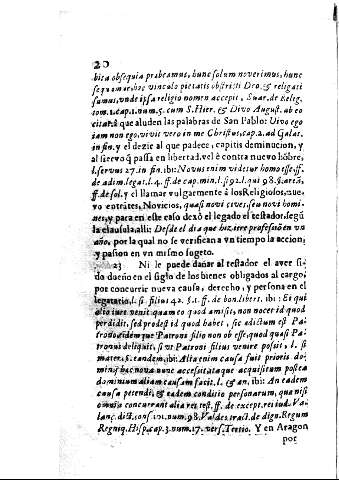 20
bita obsequia præbeamus, hunc solum noverimus, hunc
sequamur: hoc vinculo pietatis obstricti Deo, & religati
sumus, unde ipsa religio nomen accepit, Suar. de Relig.
tom. 1. cap. 1. num. 5. cum S. Hier. & Divo August. ab eo
citat. à que aluden las palabras de San Pablo: Vivo ego
iam non ego, vivit vero in me Christus, cap. 2. ad Galat.
in fin. y el dezir al que padece, capitis deminucion, y
al servo q̃ passa en libertad. vel è contra nuevo hõbre,
l. servus 27. in fin. ibi: Novus enim videtur homo esse. ff.
de adim. legat. l. 4. ff. de cap. min. l. si 92. l. qui 98. §. aream,
ff. de sol. y el llamar vulgarmente à los Religiosos, nue-
vo entrātes, Novicios, quasi novi cives, seu novi homi-
nes, y para en este caso dexò el legado el testador, segũ
la clausula, alli: Desde el dia que hiziere professiõ en vn
año, por la qual no se verifican a vn tiempo la accion,
y passion en vn mismo sugeto.
23 Ni le puede dañar al testador el aver si-
do dueño en el siglo de los bienes obligados al cargo,
por concurrir nueva causa, derecho, y persona en el
legatario, l. si filius 42. §. 1. ff. de bon. libert. ibi: Et qui
alio iure venit quam eo quod amisit, non nocet id quod
perdidit, sed prodest id quod habet, sic adictum est Pa-
trono eidemque Patroni filio non ob esse, quod quasi Pa-
tronus deliquit, si vt Patroni filius venire possit, l. si
mater, §. eandem, ibi: Alia enim causa fuit prioris do-
minij, hæc nova nunc accessit, itaque acquisitum postea
dominium aliam causam facit. l. & an, ibi: An eadem
causa petendi, & eadem conditio personarum, quæ nisi
omnia concurrant alia res est. ff. de except. rei iud. Va-
lanç. dict. cons. 171. num. 98. Valdes tract. de dign. Regum
Regniq. Hisp. cap. 3. num. 17. vers. Tertio. Y en Aragon
por